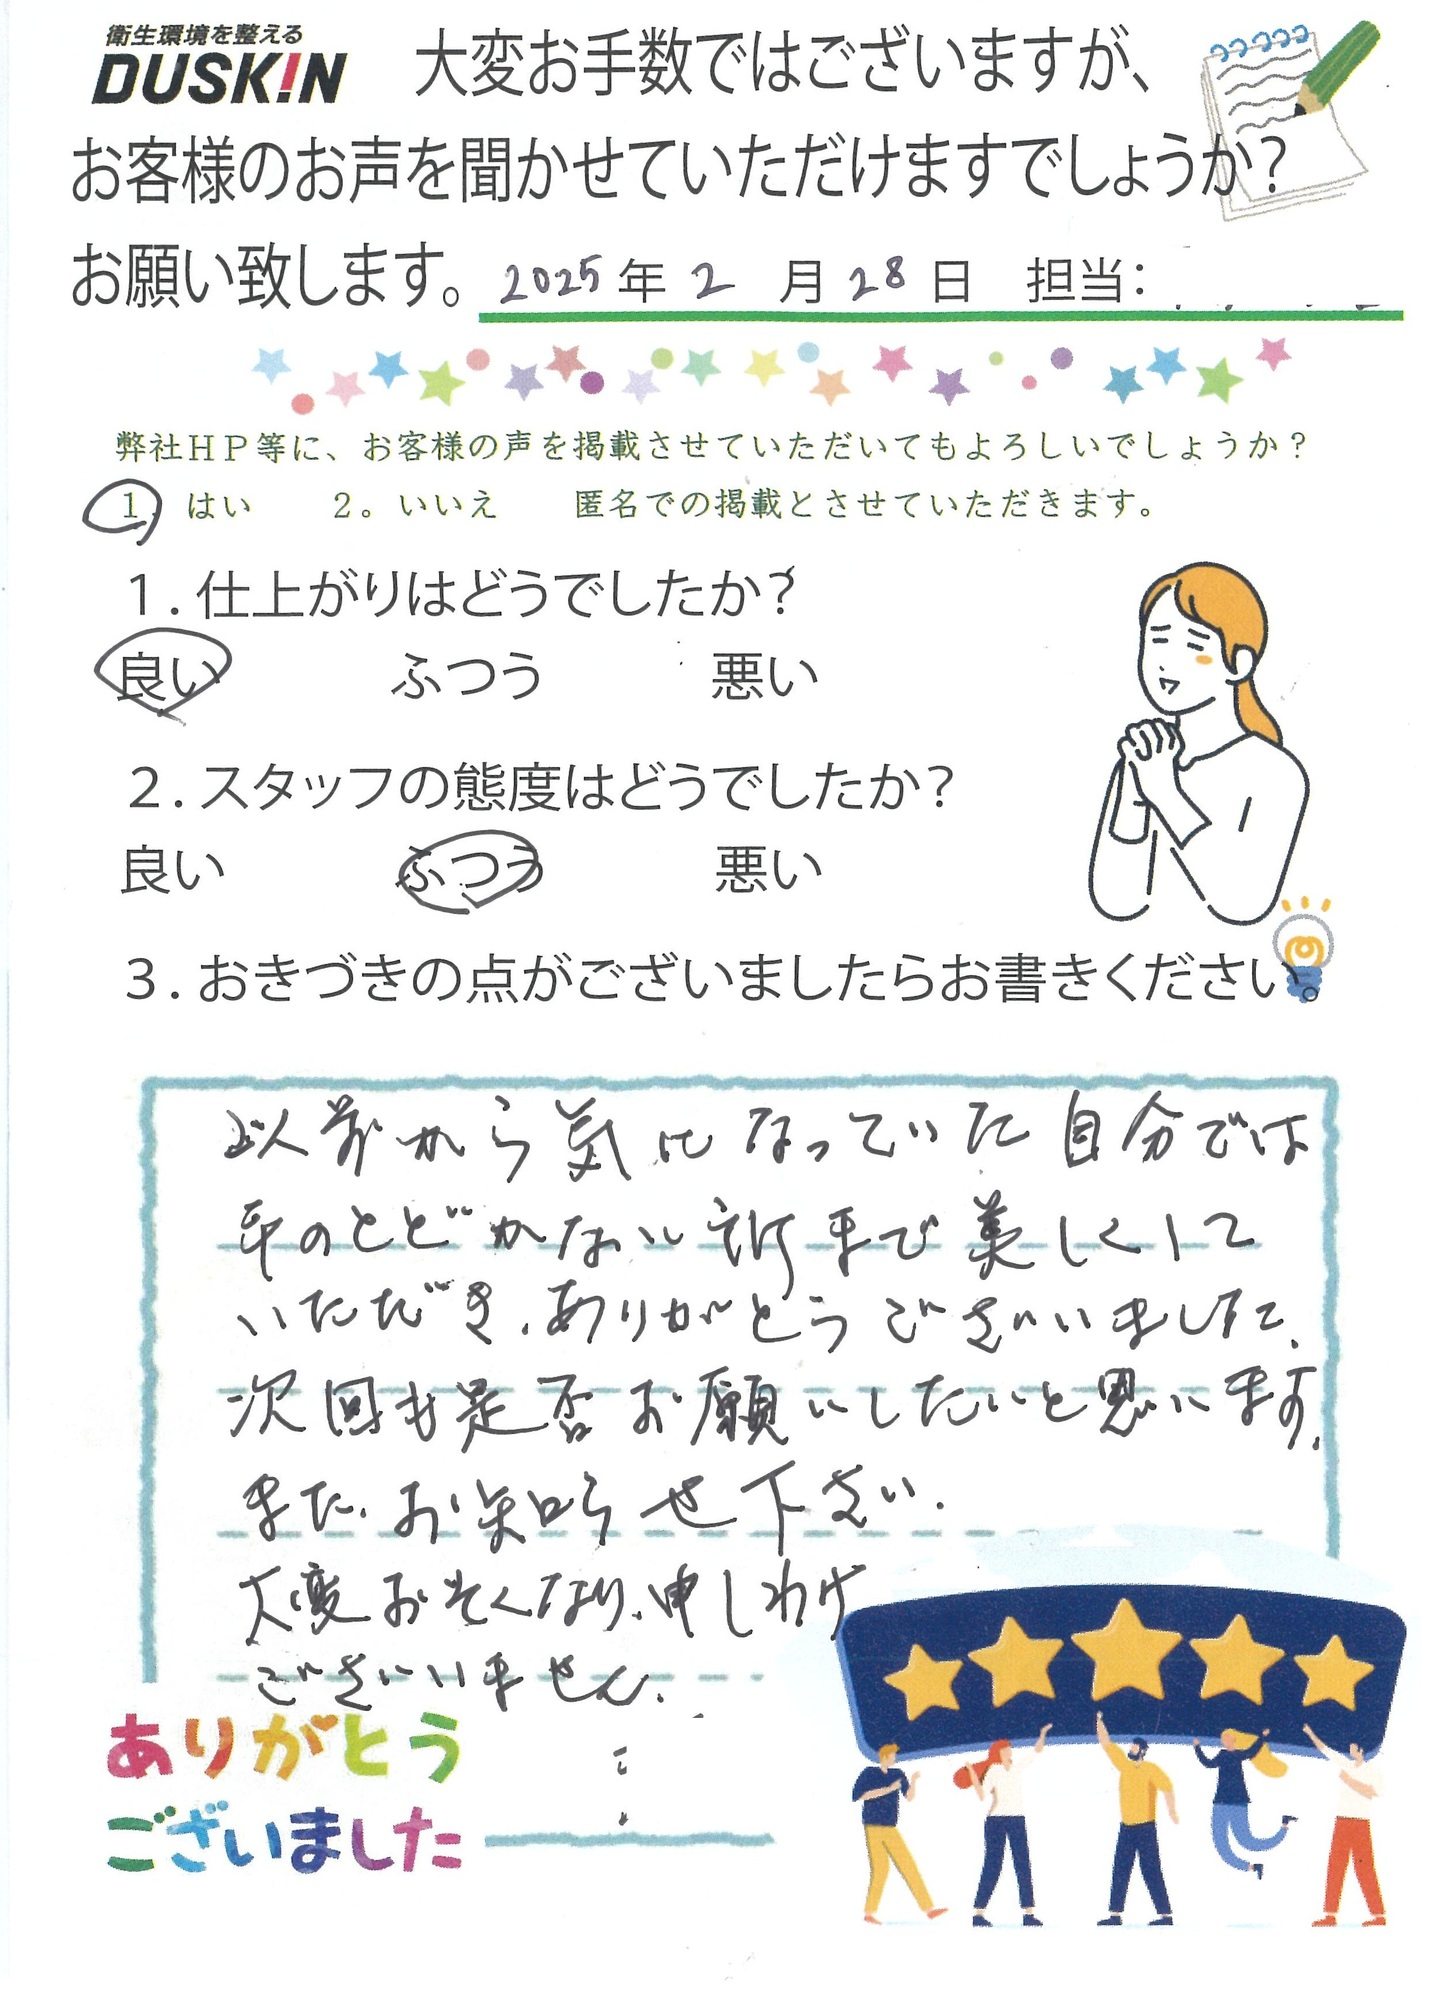 衛生環境を整える
DUSKIN
大変お手数ではございますが、
お客様のお声を聞かせていただけますでしょうか?
お願い致します。 2025年 2 月 28 日 担当:
弊社HP等に、お客様の声を掲載させていただいてもよろしいでしょうか?
1. はい 2。いいえ 匿名での掲載とさせていただきます。
1. 仕上がりはどうでしたか?
良い ふつう 悪い
2. スタッフの態度はどうでしたか?
良い ふつう 悪い
3. おきづきの点がございましたらお書きください。
以前から気になっていた自分では
手のとどかない所まで美しくして
いただき、ありがとうございました。
次回も是否お願いしたいと思います。
また、お知らせ下さい。
大変おそくなり、申しわけ
ございません。
ありがとう
ございました